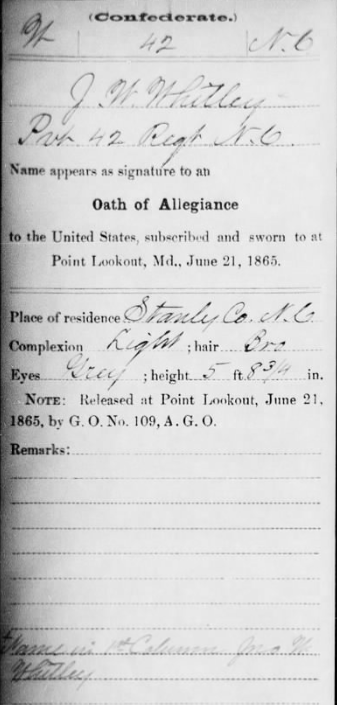 (Confederate.)
W | 42 | N.C.
J. W. Whitley
Pvt 42 Regt N.C.
Name appears as signature to an
Oath of Allegiance
to the United States, subscribed and sworn to at
Point Lookout, Md., June 21, 1865.
Place of residence Stanly Co. N.C.
Complexion Light ; hair Bro
Eyes Grey ; height 5 ft. 8 3/4 in.
NOTE: Released at Point Lookout, June 21,
1865, by G. O. No. 109, A. G. O.
Remarks:
Name in 1st Column Jno W.
Whitley